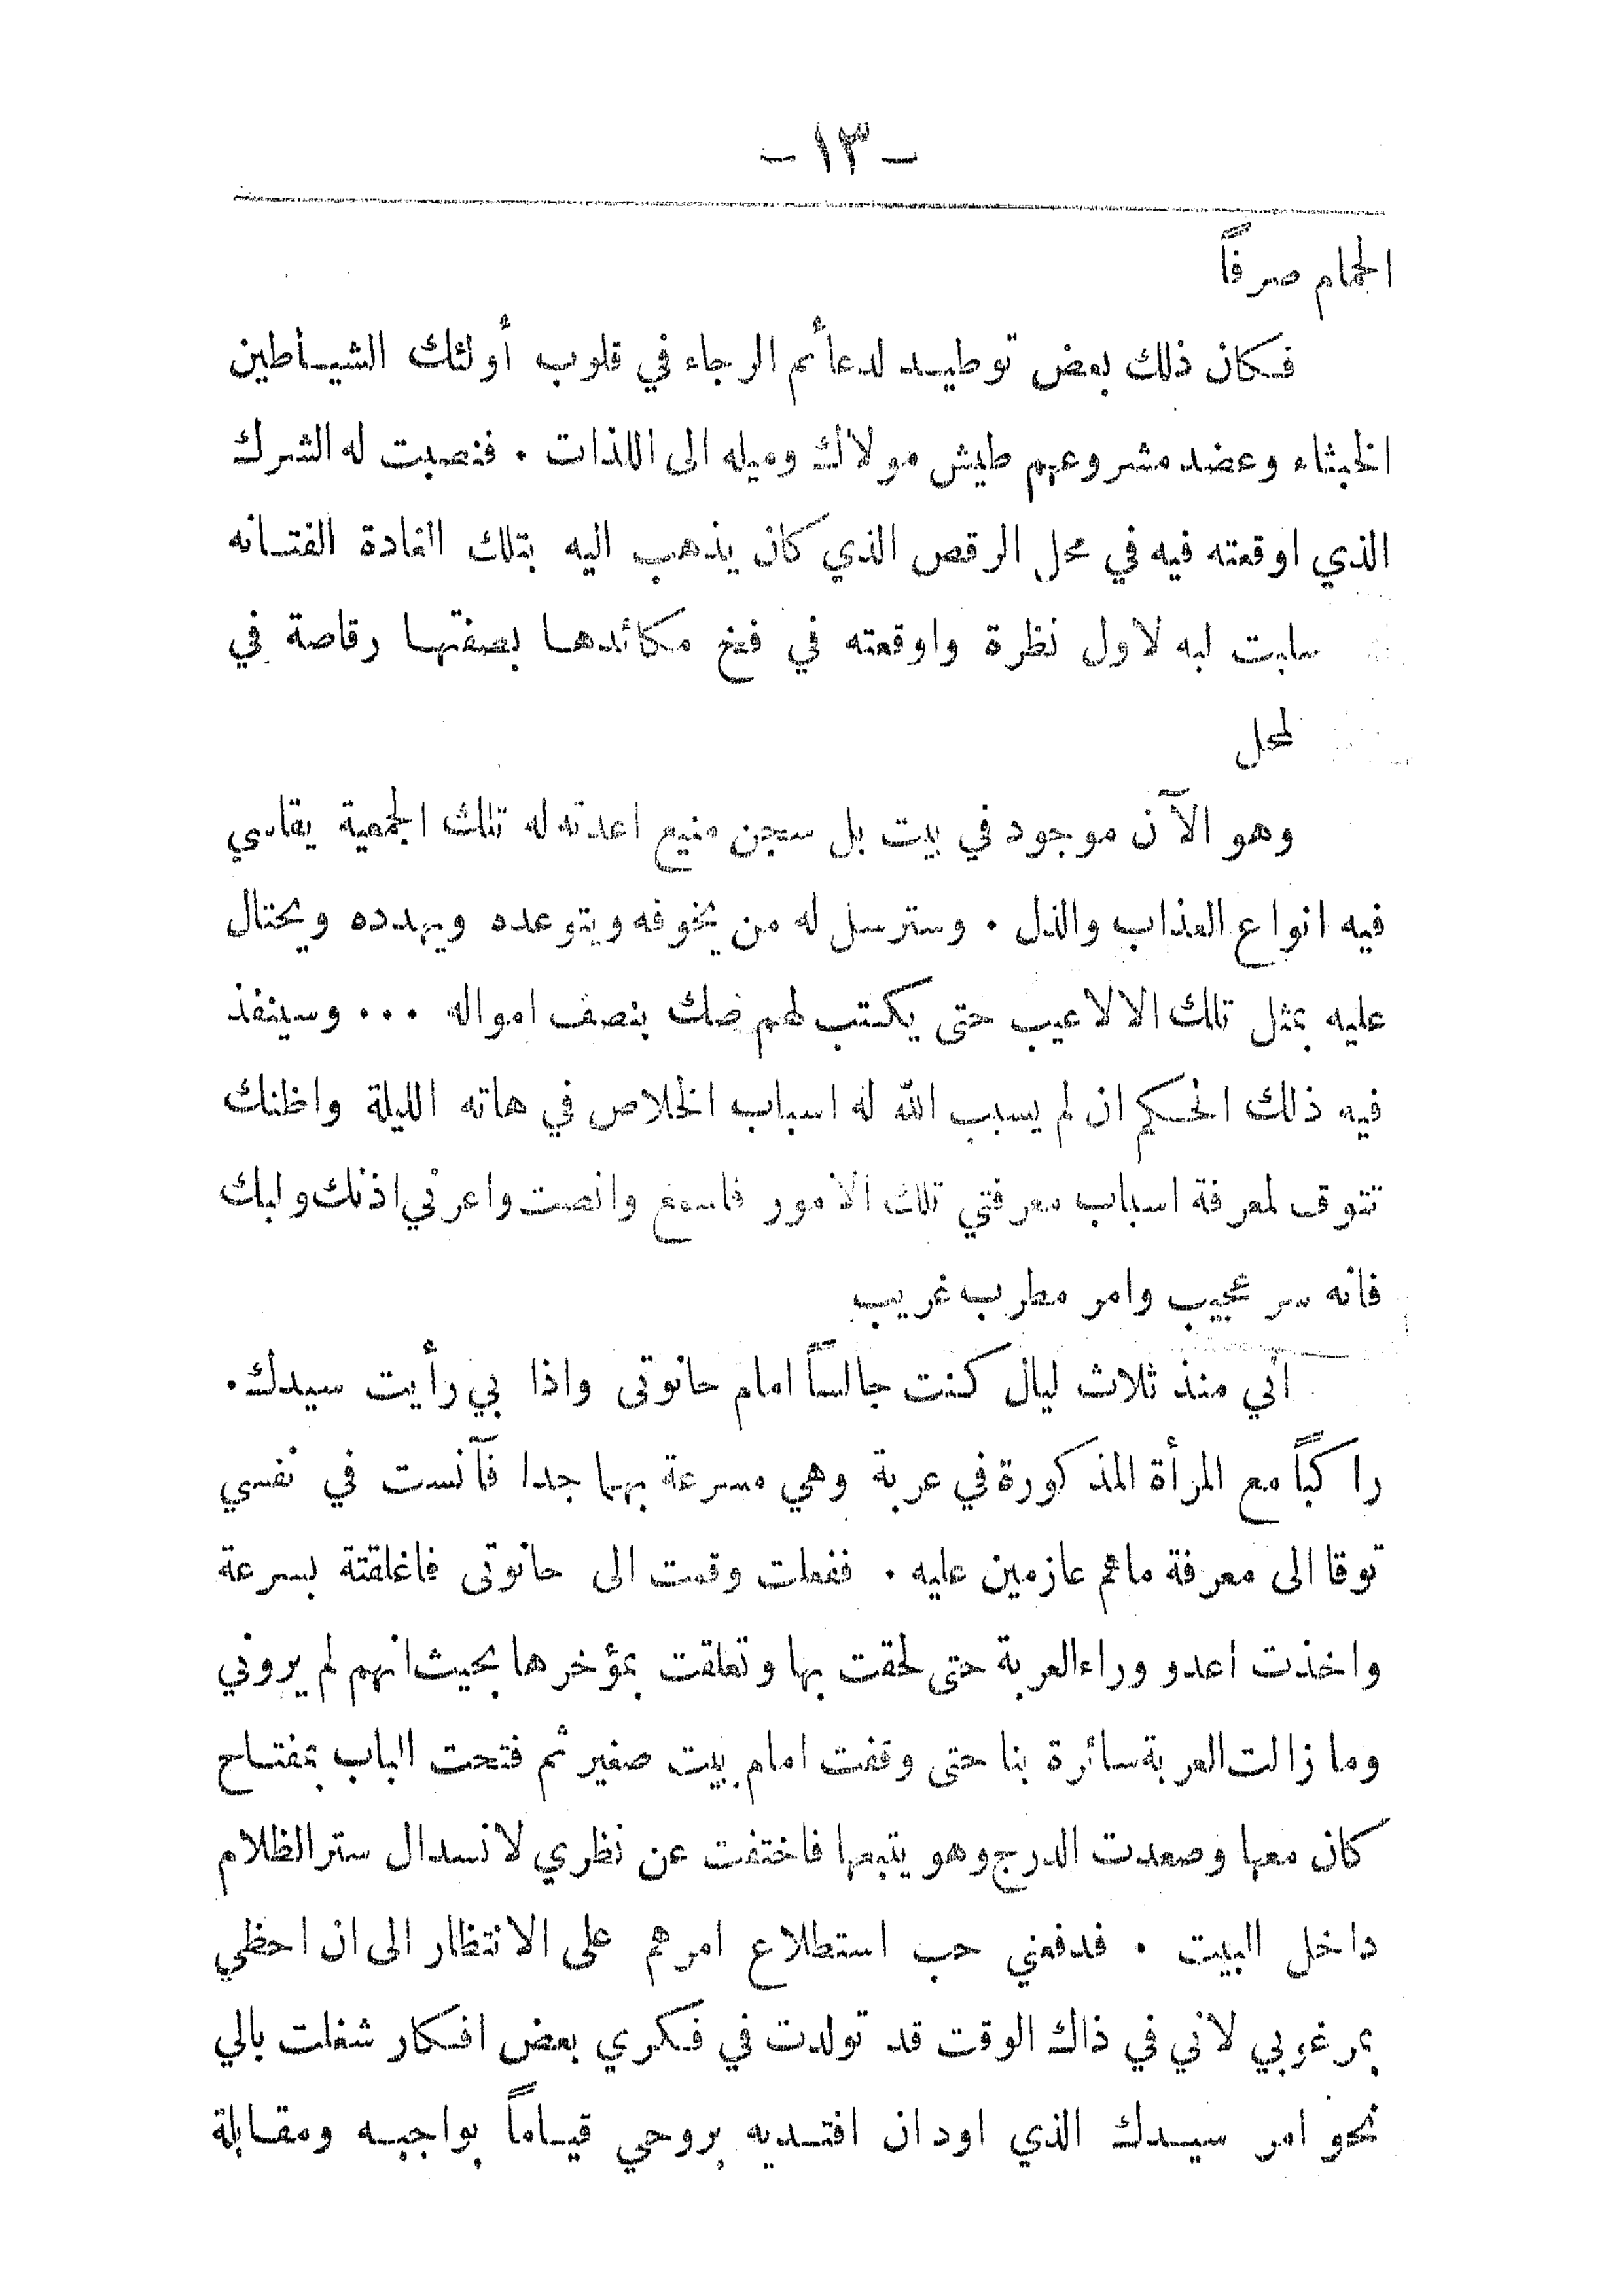 - ١٣ -
الحمام صرفاً
فكان ذلك بعض توطيد لدعأم الرجاء في قلوب أولئك الشياطين
الخبثاء وعضد مشروعهم طيش مولاك وميله الى اللذات . فنصبت له الشرك
الذي اوقعته فيه في محل الرقص الذي كان يذهب اليه بتلك الغادة الفتانه
سلبت لبه لاول نظرة واوقعته في فخ مكائدها بصفتها رقاصة في
لمحل
وهو الآن موجود في بيت بل سجن منيع اعدته له تلك الجمعية يقاسي
فيه انواع العذاب والذل . وسترسل له من يخوفه ويتوعده ويهدده ويحتال
عليه بمثل تلك الالاعيب حتى يكتب لهم صك بنصف امواله ... وسينفذ
فيه ذلك الحكم ان لم يسبب الله له اسباب الخلاص في هاته الليلة واظنك
تتوق لمعرفة اسباب معرفتي تلك الامور فاسمع وانصت واعرني اذنك ولبك
فانه سر عجيب وامر مطرب غريب
اني منذ ثلاث ليال كنت جالساً امام حانوتى واذا بي رأيت سيدك.
راكباً مع المرأة المذكورة في عربة وهي مسرعة بهما جدا فآنست في نفسي
توقا الى معرفة ماهم عازمين عليه . ففعلت وقمت الى حانوتى فاغلقتة بسرعة
واخذت اعدو وراء العربة حتى لحقت بها وتعلقت بمؤخرها بحيث انهم لم يروني
وما زالت العربة سائرة بنا حتى وقفت امام بيت صغير ثم فتحت الباب بمفتاح
كان معها وصعدت الدرج وهو يتبعها فاختفت عن نظري لانسدال ستر الظلام
داخل البيت . فدفعني حب استطلاع امرهم على الانتظار الى ان احظي
بمرغوبي لاني في ذاك الوقت قد تولدت في فكري بعض افكار شغلت بالي
نحو امر سيدك الذي اود ان افتديه بروحي قياماً بواجبه ومقابلة